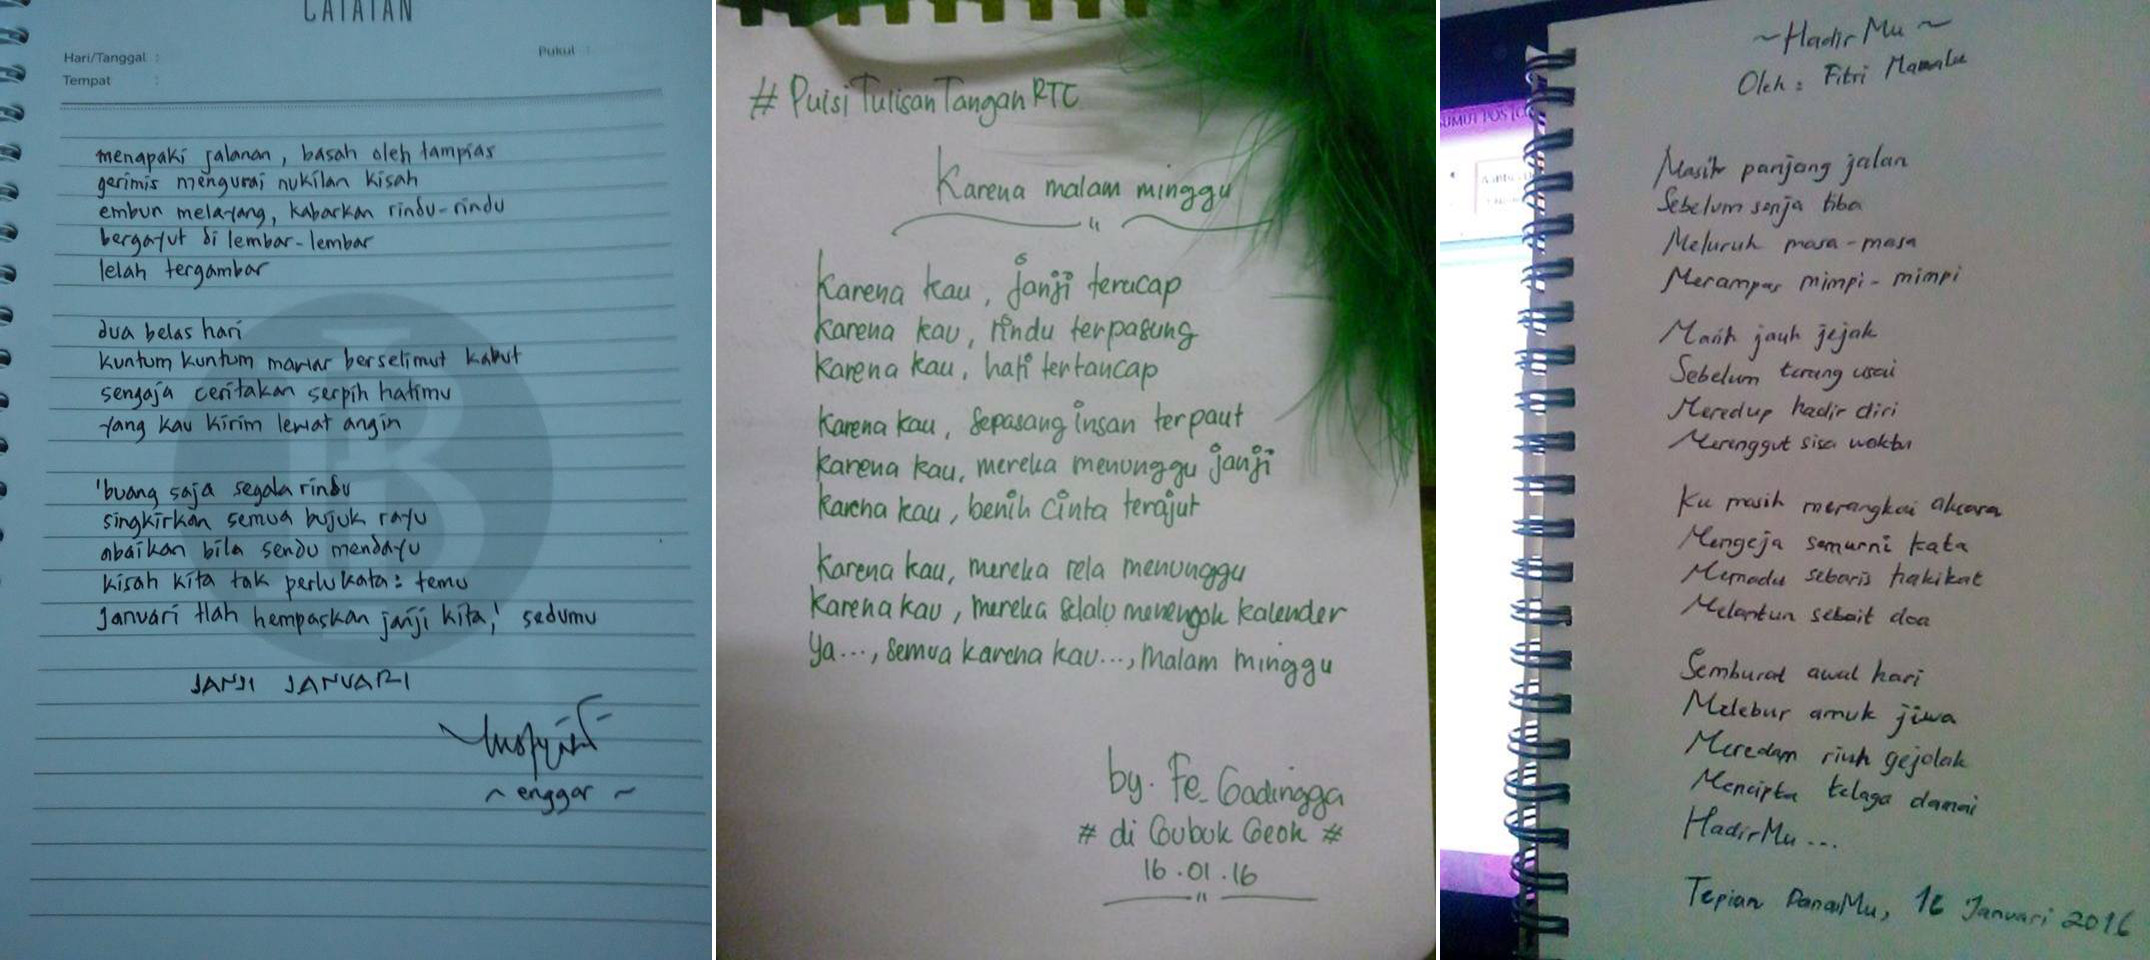 CATATAN
Hari/Tanggal :
Pukul :
Tempat :
menapaki jalanan, basah oleh tampias
gerimis mengurai nukilan kisah
embun melayang, kabarkan rindu-rindu
bergayut di lembar-lembar
lelah tergambar
dua belas hari
kuntum kuntum mawar berselimut kabut
sengaja ceritakan serpih hatimu
yang kau kirim lewat angin
'buang saja segala rindu
singkirkan semua bujuk rayu
abaikan bila sendu mendayu
kisah kita tak perlu kata: temu
Januari tlah hempaskan janji kita,' sedumu
JANJI JANUARI
~ enggar ~
# Puisi Tulisan Tangan RTC
Karena malam minggu
Karena kau, janji terucap
karena kau, rindu terpasung
karena kau, hati tertancap
Karena kau, sepasang insan terpaut
karena kau, mereka menunggu janji
karena kau, benih cinta terajut
Karena kau, mereka rela menunggu
karena kau, mereka selalu menengok kalender
Ya..., semua karena kau..., malam minggu
by. Fe_Gadingga
# di Gubuk Geok #
16.01.16
SUMUT POS
~HadirMu~
Oleh : Fitri
Masih panjang jalan
Sebelum senja tiba
Meluruh masa-masa
Merampas mimpi-mimpi
Masih jauh jejak
Sebelum terang usai
Meredup hadir diri
Merenggut sisa waktu
Ku masih merangkai aksara
Mengeja semurni kata
Memadu sebaris hakikat
Melantun sebait doa
Semburat awal hari
Melebur amuk jiwa
Meredam riuh gejolak
Mencipta telaga damai
HadirMu...
Tepian DanauMu, 16 Januari 2016